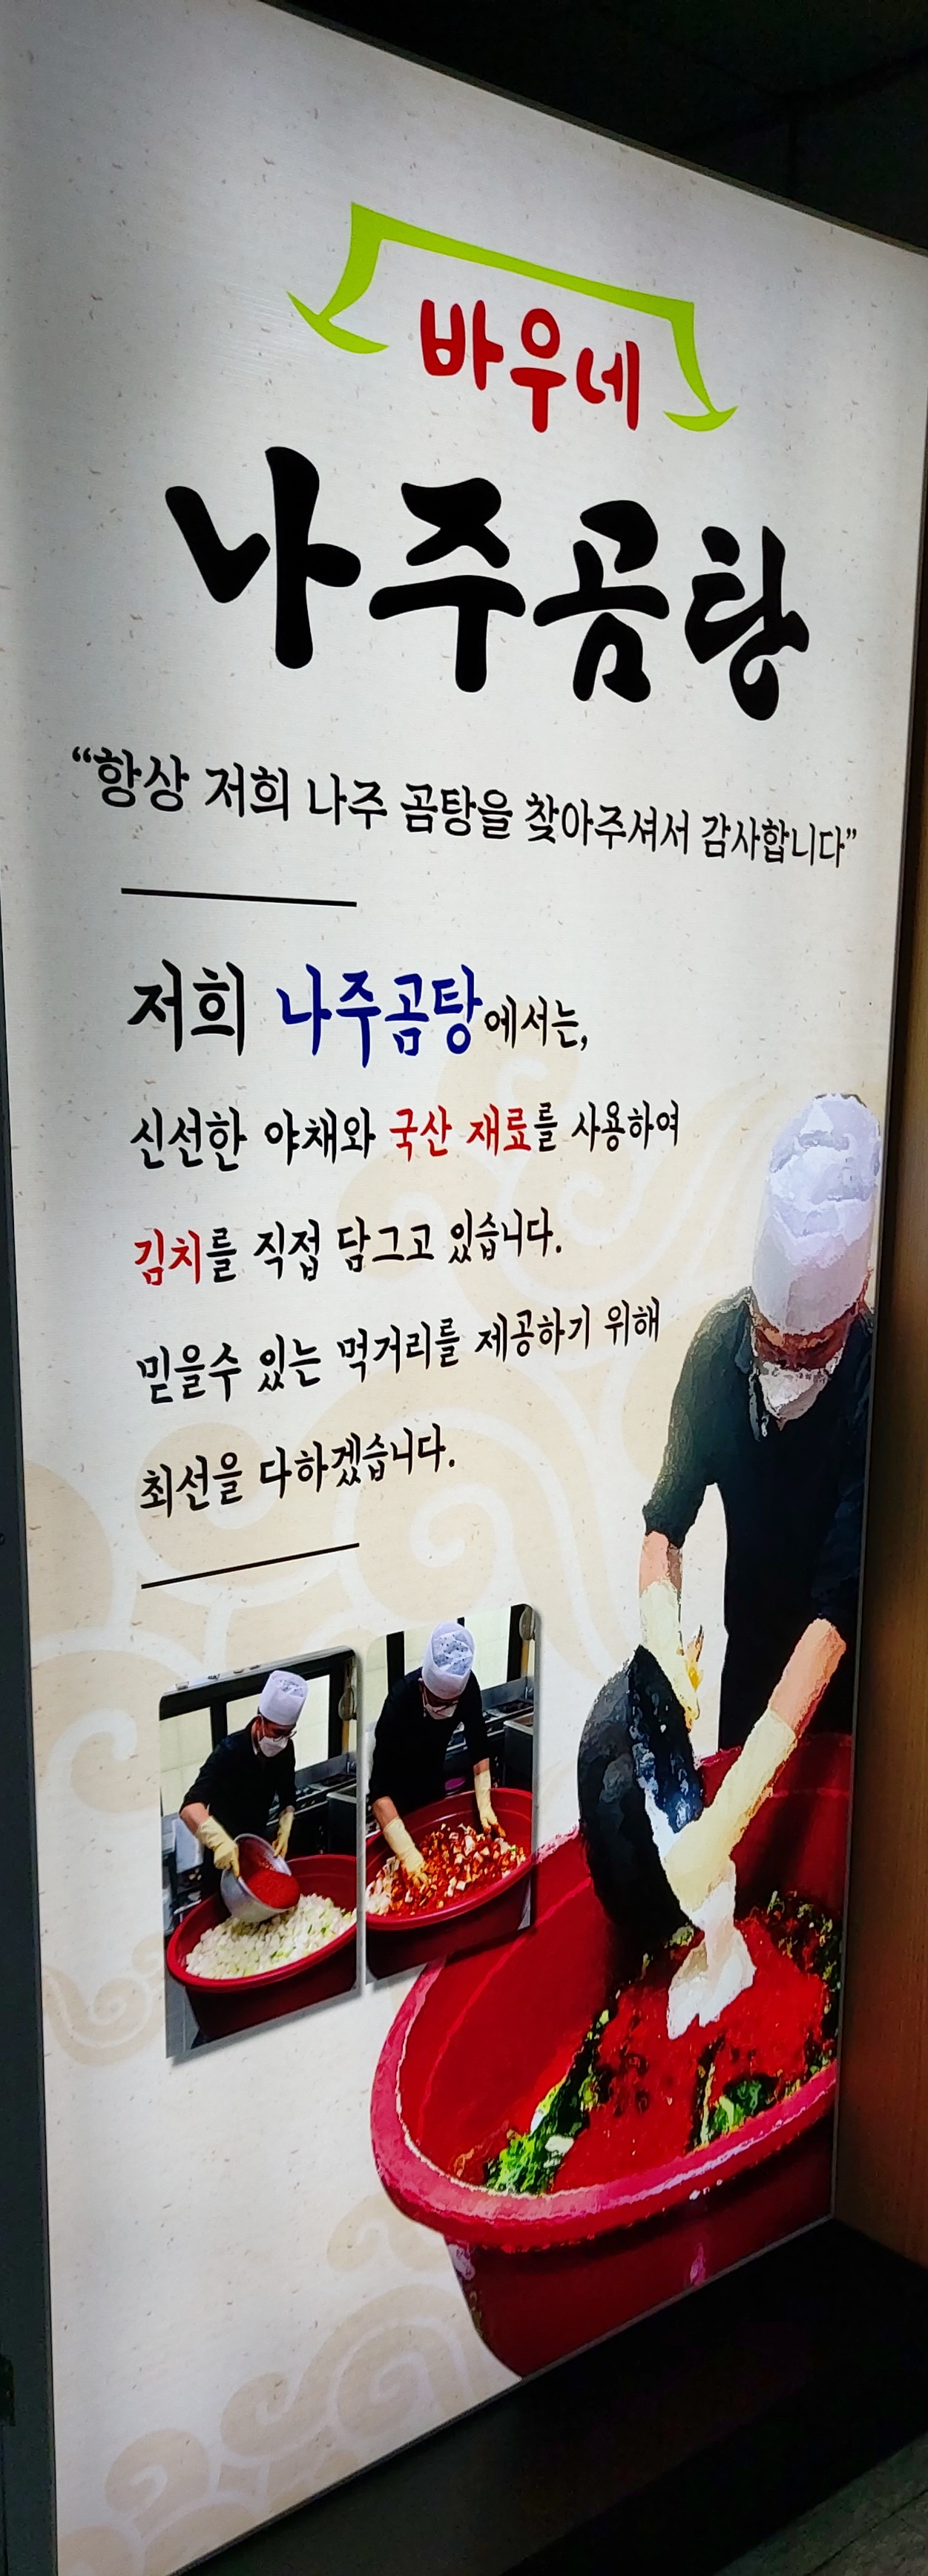 바우네
나주곰탕
“항상 저희 나주 곰탕을 찾아주셔서 감사합니다”
저희 나주곰탕에서는,
신선한 야채와 국산 재료를 사용하여
김치를 직접 담그고 있습니다.
믿을수 있는 먹거리를 제공하기 위해
최선을 다하겠습니다.